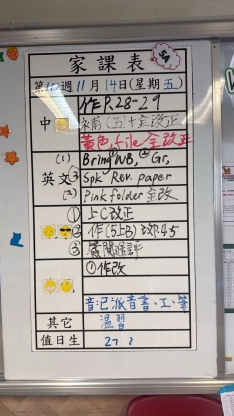 家課表
5A
第10週11月14日(星期五)
作P.28-29
中 補(五十全改正
黃色file全改正
(1) Bring① WB, ② Gr,
英文③ Spk Rev. paper
(2) Pink folder 全改
① 上C改正
② 作(5上B) 改P.45
③
① 作改
音:已派音書、工、筆
其它 溫習
值日生 27